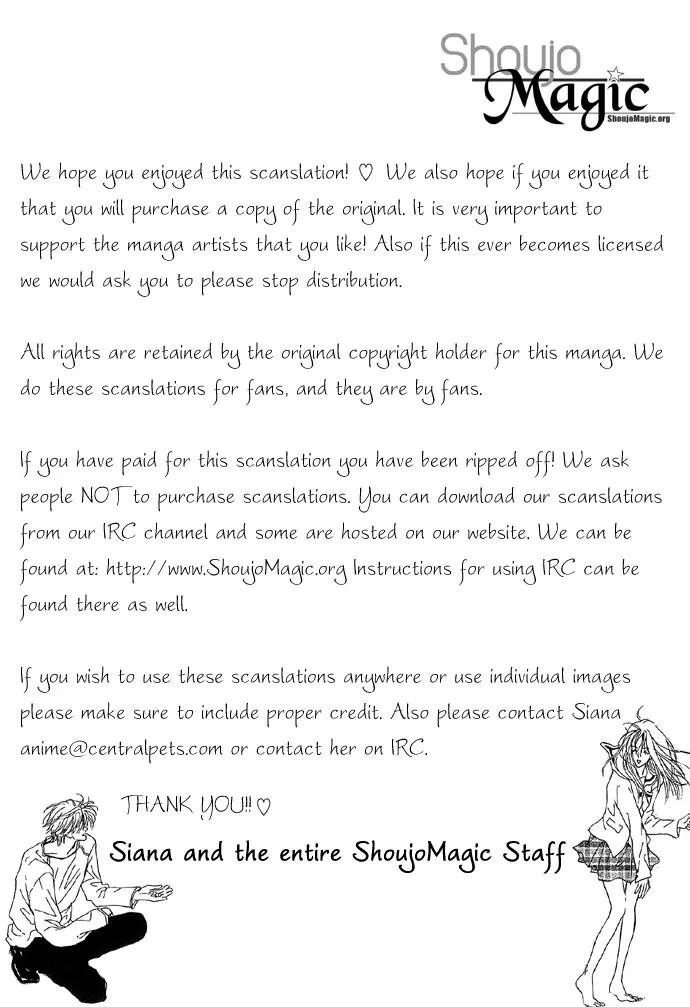 Shoujo
Magic
ShoujoMagic.org
We hope you enjoyed this scanslation! ♡ We also hope if you enjoyed it
that you will purchase a copy of the original. It is very important to
support the manga artists that you like! Also if this ever becomes licensed
we would ask you to please stop distribution.
All rights are retained by the original copyright holder for this manga. We
do these scanslations for fans, and they are by fans.
If you have paid for this scanslation you have been ripped off! We ask
people NOT to purchase scanslations. You can download our scanslations
from our IRC channel and some are hosted on our website. We can be
found at: http://www.ShoujoMagic.org Instructions for using IRC can be
found there as well.
If you wish to use these scanslations anywhere or use individual images
please make sure to include proper credit. Also please contact Siana
anime@centralpets.com or contact her on IRC.
THANK YOU!! ♡
Siana and the entire ShoujoMagic Staff